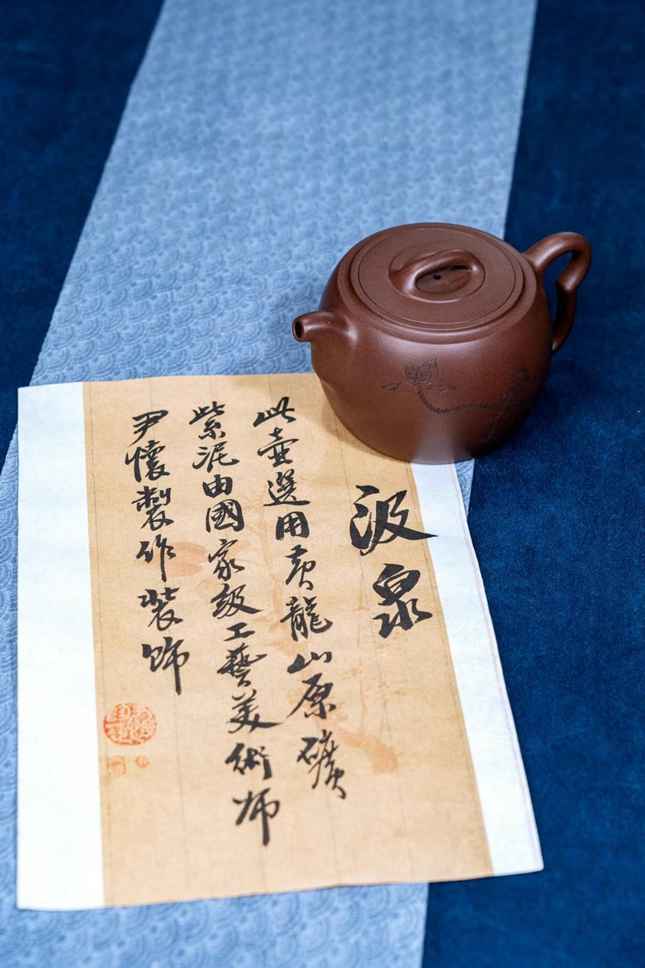 汲泉
此壷選用黄龍山原礦
紫泥由國家級工藝美術師
尹懷製作裝飾